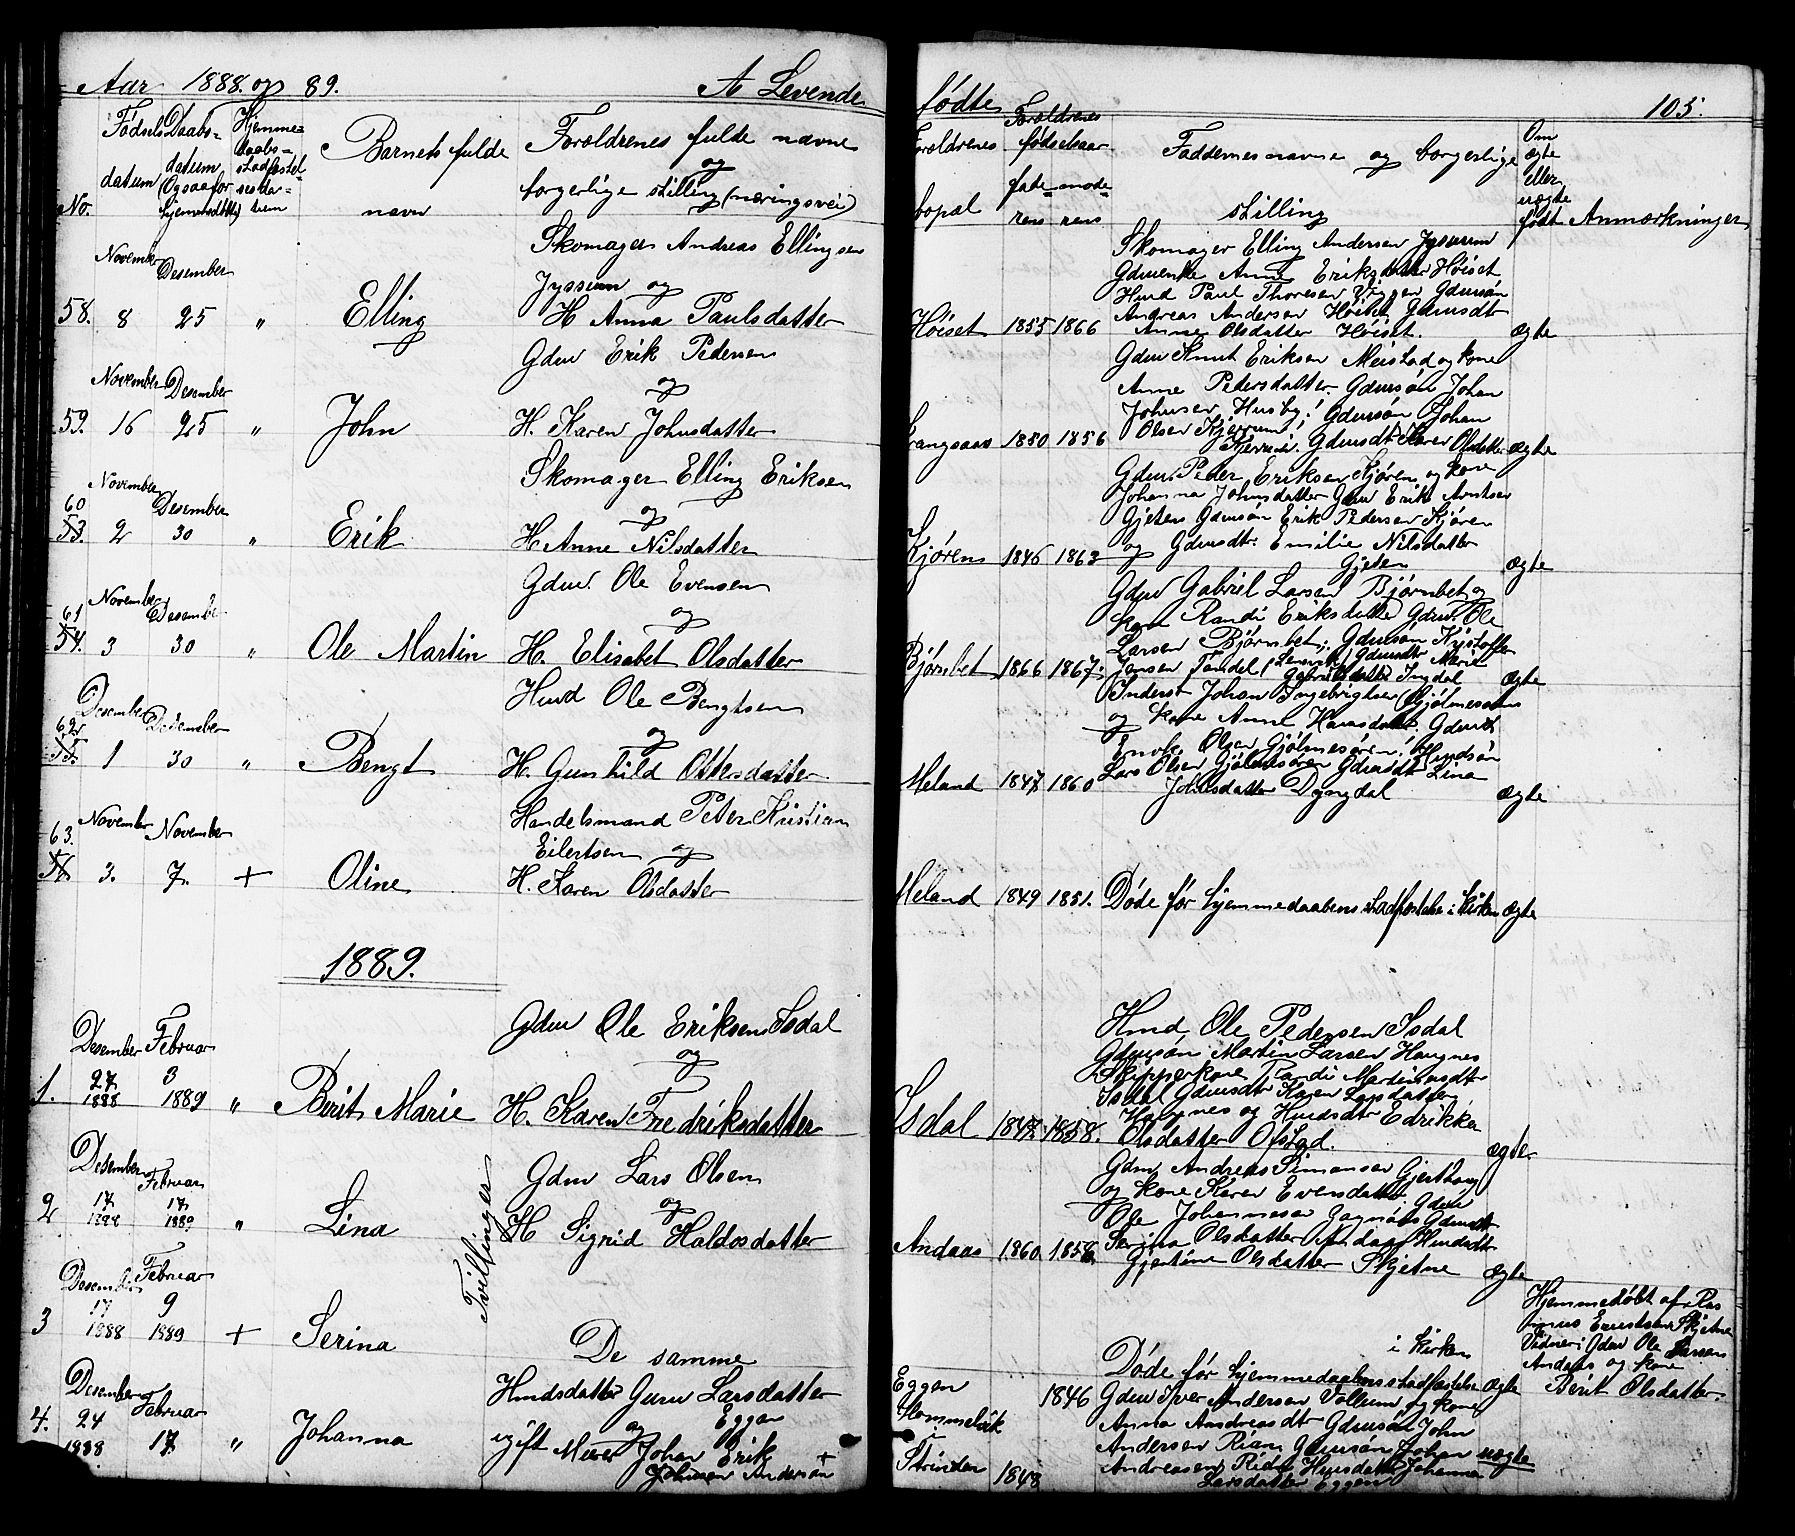 Aar 1888 og 89. A Levende fødte 105.
No. Fødsels datum Daabs- datum Ogsaa for hjemmedøbte Hjemme- daabs- stadfæstel- ses da- tum Barnets fulde navn Forældrenes fulde navne og borgerlige stilling (næringsvei) Forældrenes bopæl Forældrenes fødselsaar fade- rens mode- rens Faddernes navne og borgerlige stilling Om ægte eller uægte født Anmærkninger
November Desember
58. 8 25 " Elling
Skomager Andreas Ellingsen
Jyssum og
H Anna Paulsdatter
Høiset 1855 1866
Skomager Elling Andersen Jyssum
Gdmenke Anne Eriksdatter Høiset
Husd Paul Thoresen Gdmsøn
Andreas Andersen Høiset Gdmsdtr
Anne Olsdatter Høiset.
ægte
November Desember
59. 16 25 " John
Gdm Erik Pedersen
og
H. Karen Johnsdatter
Langsaas 1850 1856
Gdm Knut Eriksen Meistad og kone
Anne Pedersdatter. Gdmsøn Johan
Johnsen Husby; Gdmsøn Johan
Olsen Kjerrum;
Kjerrum. Gdmsdt Karen Olsdatter
ægte
November Desember
60 53. 2 30 " Erik
Skomager Elling Eriksen
og
H Anne Nilsdatter
Kjøren 1846 1863
Gdm. Peder Eriksen Kjøren og kone
Johanna Johnsdatter Gdm Erik Arntsen
Gjeten Gdmsøn Erik Pedersen Kjøren
og Gdmsdtr: Emilie Nilsdatter
Gjeten
ægte
November Desember
61 54. 3 30 " Ole Martin
Gdm. Ole Evensen
og
H. Elisabet Olsdatter
Bjørnbet 1866 1867
Gdm Gabriel Larsen Bjørnbet og
kone Randi Eriksdatter Gdm. Ole
Larsen Bjørnbet; Gdmsøn Kristoffer
Jensen Tandel Gdmsdtr Marie
Gabrielsdatter Ingdal
ægte
Desember Desember
62 55. 1 30 " Bengt
Husd Ole Bengtsen
og
H. Gunhild Ottersdatter
Meland 1847 1860
Inderst Johan Ingebrigtsen Gjølmesøren
og kone Anne Hansdatter. Gdmsd
Enok Olsen Gjølmesøren; Husdsøn
Lars Olsen Gjølmesøren Gdmsdt Lina
Johnsdatter Dyngdal
ægte
November November
63. 56. 3. 7. + Oline
Handelsmand Peter Kristian
Eilertsen og
H. Karen Olsdatter
Meland 1849 1851.
Døde før hjemmedaabens stadfæstelse i kirken ægte
1889.
Desember Februar
1. 27 1888 3 1889 " Berit Marie
Gdm Ole Eriksen Isdal
og
H. Karen Fredriksdatter
Isdal 1847 1858.
Husd Ole Pedersen Isdal
Gdmsøn Martin Larsen Haugnes
Skipperkone Randi Martinusdtr
Isdal Gdmsdt Karen Larsdatter
Haugnes og Husdsdtr Edrikke
Olsdatter Ofstad.
ægte
Desember Februar
2 17 1888 17 1889 " Lina
Tvillinger
Gdm Lars Olsen
og
H Sigrid Haldosdatter
Andaas 1860 1856
Gdm Andreas Simonsen Gjerthaug
og kone Karen Evensdatter. Gdm
Ole Johannesen Gdmsdt
Serina Olsdatter Andaas Husdsdtr
Gjertine Olsdatter Skjetne
ægte
Desember Februar
3 17 1888 9 1889 + Serina
De samme
i kirken
Døde før hjemmedaabens stadfæstelse ægte
Hjemmedøbt af Ras
mus Erntsen Skjetne
Vidner: Gdm Ole Larsen
Andaas og kone
Berit Olsdatter.
Desember Februar
4. 24 1888 17 " Johanna
Husdsdatter Guru Larsdatter
Eggen
og
ugift Murer Johan Erik
Johnsen Anderson +
Eggen
Hommelvik
i
Strinden 1848
1846
Gdm Iver Andersen Vollum og kone
Anna Andreasdtr Gdmsøn John
Andersen Rian Gdmsøn Johan
Andreasen Rian Husdsdatter Johanna
Larsdatter Eggen
uægte